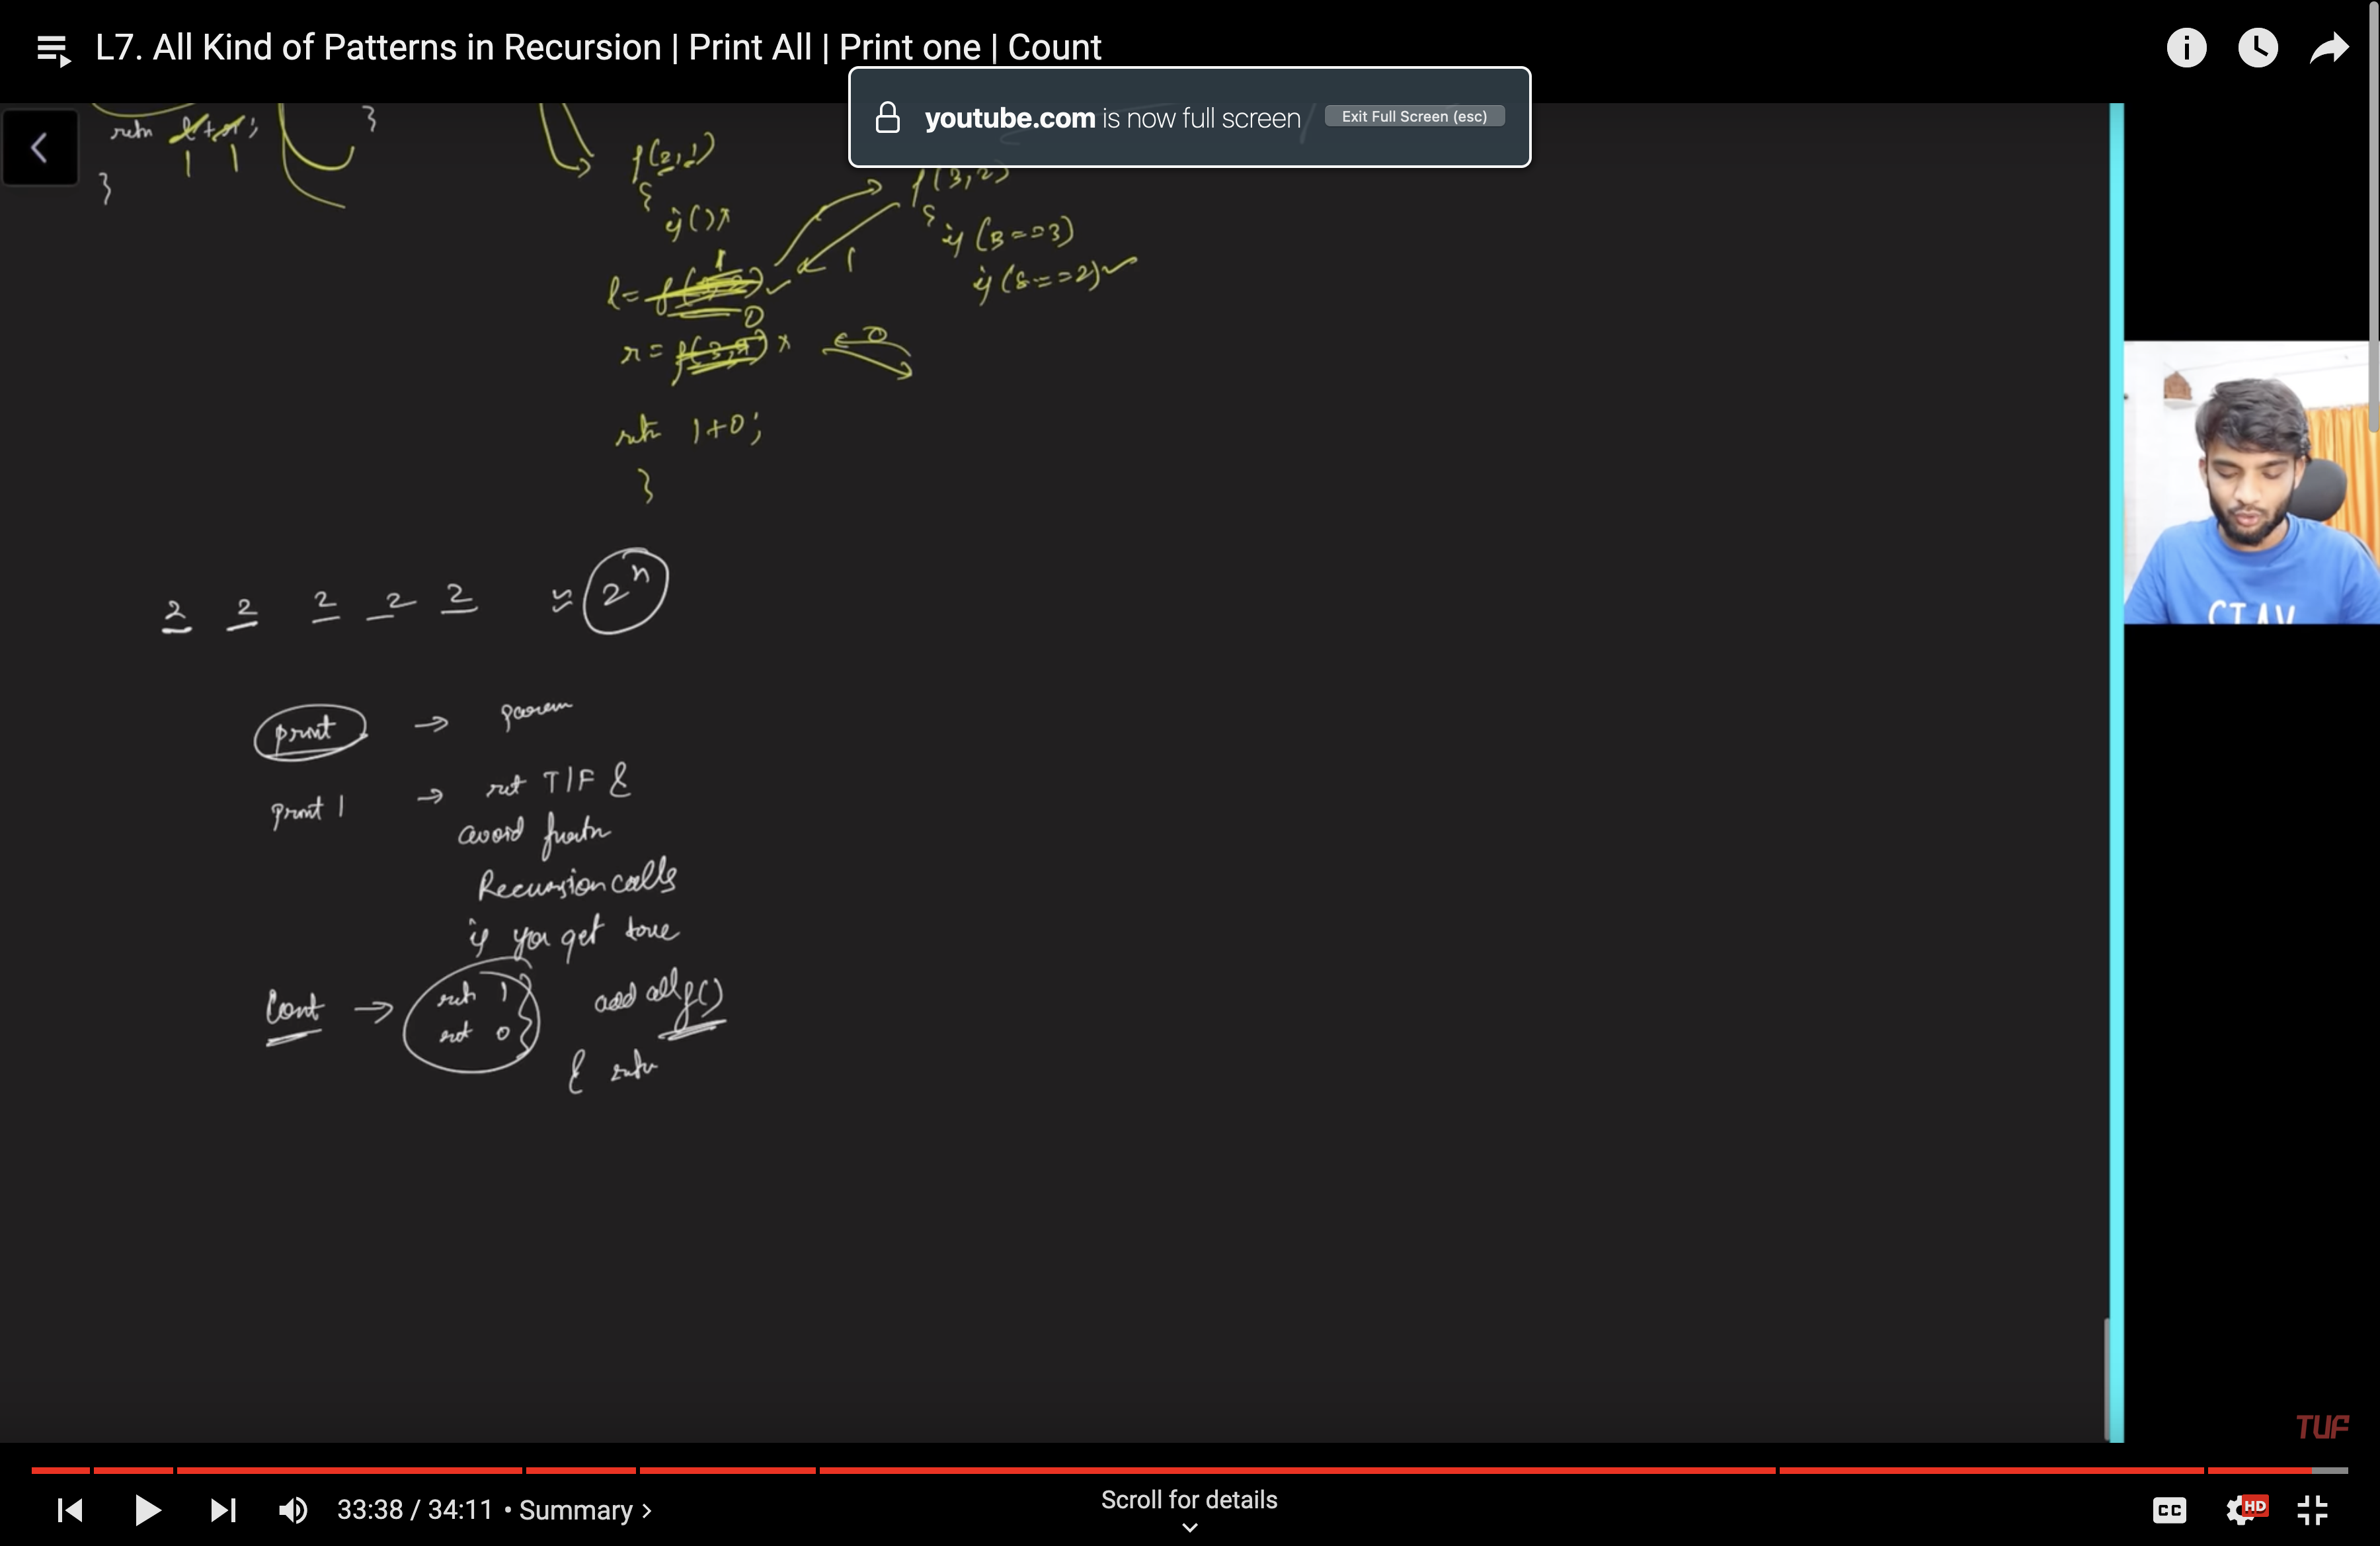 L7. All Kind of Patterns in Recursion | Print All | Print one | Count
youtube.com is now full screen
Exit Full Screen (esc)
retn l+r;
}
1 1
}
f(2,1)
{
if()x
f(3,2)
{
if (3==3)
if (s==2)✓
1
1
l=
✓
0
r= f(3,
x
0
retn 1+0;
}
2 2 2 2 2 ≈ 2ⁿ
print → param
print 1 → ret T/F &
avoid
Recursion calls
if you get true
Cont → retn 1 } add all f()
ret 0
& retn
STAY
TUF
33:38 / 34:11 • Summary >
Scroll for details
CC
HD